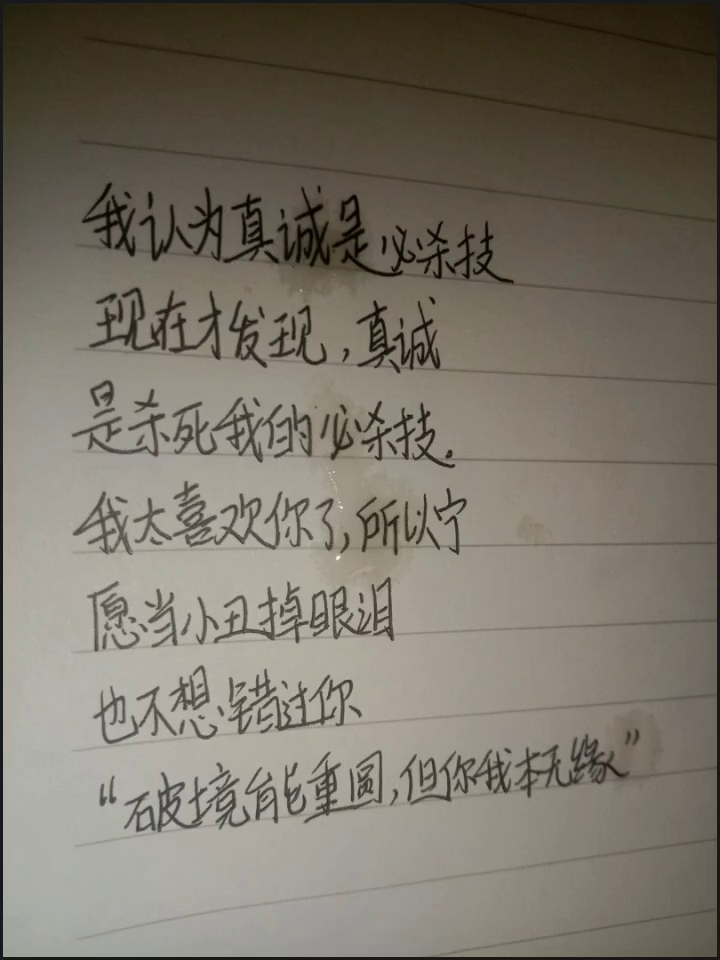 我认为真诚是必杀技
现在才发现，真诚
是杀死我的必杀技.
我太喜欢你了,所以宁
愿当小丑掉眼泪
也不想错过你
“破境能重圆,但你我本无缘”